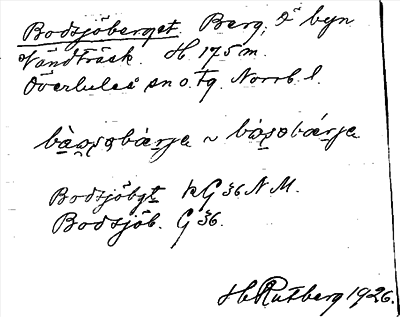 Bodsjöberget. Berg, i byn
Vändträsk. H 175 m.
Överluleå sn o. tg. Norrb. l.
Bodsjöbgt kG 36 N M.
Bodsjöb. G 36.
H. Rutberg 1926.